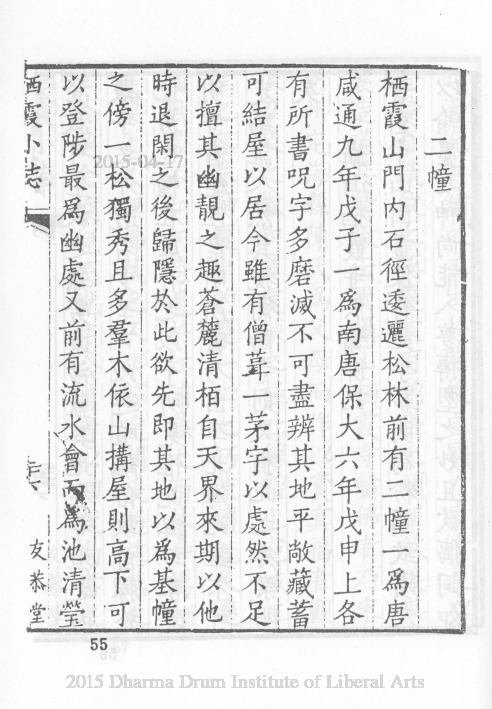 二幢
栖霞山門內石徑逶邐松林前有二幢一爲唐
咸通九年戊子一爲南唐保大六年戊申上各
有所書呪字多磨滅不可盡辨其地平敞藏蓄
可結屋以居今雖有僧葺一茅宇以處然不足
以擅其幽靚之趣蒼麓清栢自天界來期以他
時退閑之後歸隱於此欲先即其地以爲基幢
之傍一松獨秀且多羣木依山搆屋則高下可
以登陟最爲幽處又前有流水會而爲池清瑩
栖霞小志
友恭堂
55
2015-04-17
2015 Dharma Drum Institute of Liberal Arts